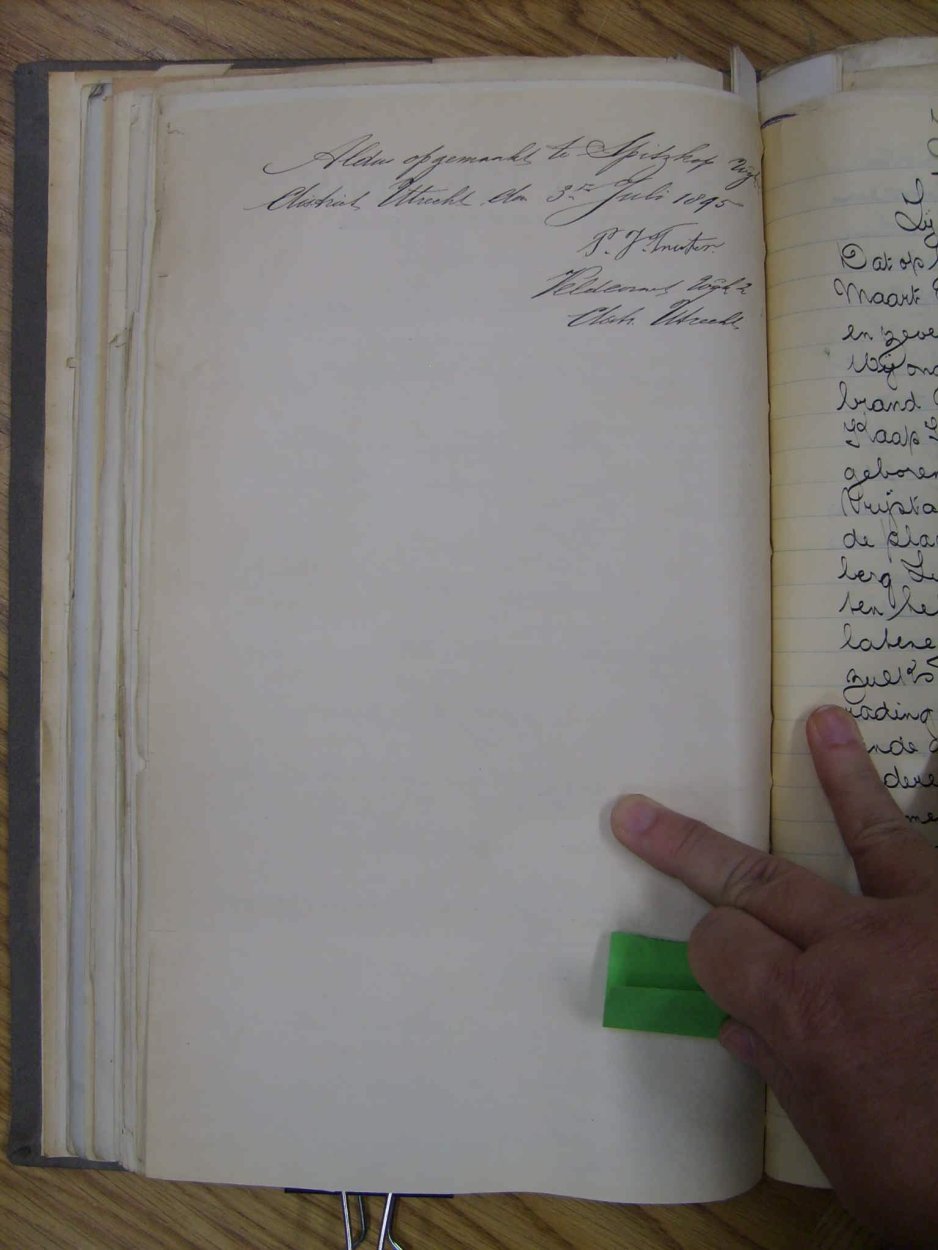 Aldus opgemaakt te Spitzkop Wyk
district Utrecht den 3de Juli 1895
P. J.
Veldcornet Wyk 2
distr. Utrecht
Zij
Dat op
Maart
en zeve
Wij ond
brand
Kaap
geboren
Vrijsta
de plaa
berg
ten he
latene
zulks
rading
inde
dere
me